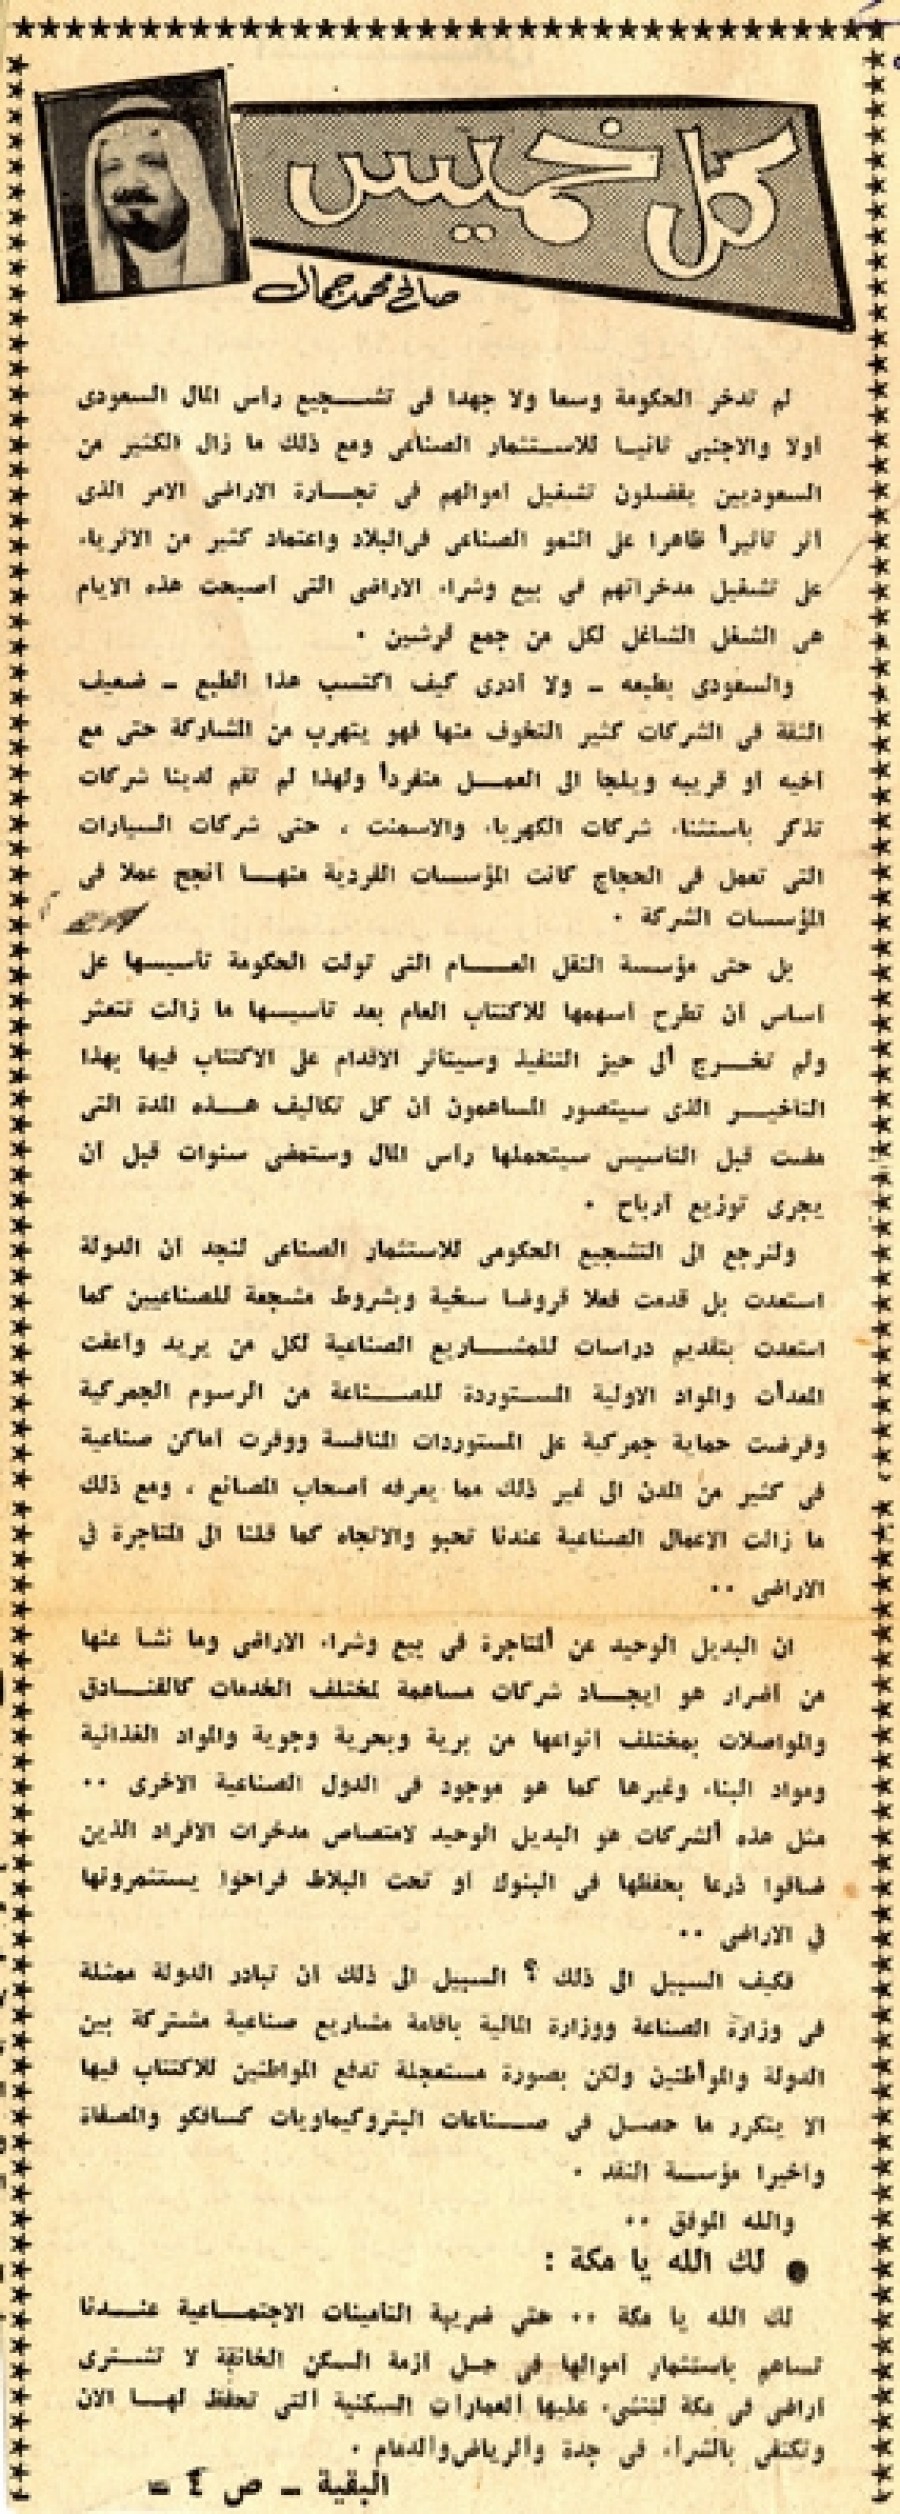 كل خميس
صالح محمد جمال
لم تدخر الحكومة وسعا ولا جهدا فى تشجيع رأس المال السعودى
أولا والاجنبى ثانيا للاستثمار الصناعى ومع ذلك ما زال الكثير من
السعوديين يفضلون تشغيل أموالهم فى تجارة الاراضى الامر الذى
أثر تأثيرأ ظاهرا على النمو الصناعى فى البلاد واعتماد كثير من الاثرياء
على تشغيل مدخراتهم فى بيع وشراء الاراضى التى أصبحت هذه الايام
هى الشغل الشاغل لكل من جمع قرشين .
والسعودى بطبعه ـ ولا أدرى كيف اكتسب هذا الطبع ـ ضعيف
الثقة فى الشركات كثير التخوف منها فهو يتهرب من المشاركة حتى مع
أخيه أو قريبه ويلجأ الى العمل منفردأ ولهذا لم تقم لدينا شركات
تذكر باستثناء شركات الكهرباء والاسمنت ، حتى شركات السيارات
التى تعمل فى الحجاج كانت المؤسسات الفردية منها أنجح عملا فى
المؤسسات الشركة .
بل حتى مؤسسة النقل العام التى تولت الحكومة تأسيسها على
أساس أن تطرح أسهمها للاكتتاب العام بعد تأسيسها ما زالت تتعثر
ولم تخرج ألى حيز التنفيذ وسيتأثر الاقدام على الاكتتاب فيها بهذا
التأخير الذى سيتصور المساهمون أن كل تكاليف هذه المدة التى
مضت قبل التأسيس سيتحملها رأس المال وستمضى سنوات قبل أن
يجرى توزيع أرباح .
ولنرجع الى التشجيع الحكومى للاستثمار الصناعى لنجد أن الدولة
استعدت بل قدمت فعلا قروضا سخية وبشروط مشجعة للصناعيين كما
استعدت بتقديم دراسات للمشاريع الصناعية لكل من يريد وأعفت
المعدأت والمواد الاولية المستوردة للصناعة من الرسوم الجمركية
وفرضت حماية جمركية على المستوردات المنافسة ووفرت أماكن صناعية
فى كثير من المدن الى غير ذلك مما يعرفه أصحاب المصانع ، ومع ذلك
ما زالت الاعمال الصناعية عندنا تحبو والاتجاه كما قلنا الى المتاجرة فى
الاراضى ..
ان البديل الوحيد عن ألمتاجرة فى بيع وشراء الاراضى وما نشأ عنها
من أضرار هو ايجاد شركات مساهمة لمختلف الخدمات كالفنادق
والمواصلات بمختلف أنواعها من برية وبحرية وجوية والمواد الغذائية
ومواد البناء وغيرها كما هو موجود فى الدول الصناعية الاخرى ..
مثل هذه ألشركات هو البديل الوحيد لامتصاص مدخرات الافراد الذين
ضاقوا ذرعا بحفظها فى البنوك أو تحت البلاط فراحوا يستثمرونها
فى الاراضى ..
فكيف السبيل الى ذلك ؟ السبيل الى ذلك أن تبادر الدولة ممثلة
فى وزارة الصناعة ووزارة المالية باقامة مشاريع صناعية مشتركة بين
الدولة والموأطنين ولكن بصورة مستعجلة تدفع المواطنين للاكتتاب فيها
الا يتكرر ما حصل فى صناعات البتروكيماويات كسافكو والمصفاة
وأخيرا مؤسسة النقد .
والله الموفق ..
● لك الله يا مكة :
لك الله يا مكة .. حتى ضريبة التأمينات الاجتماعية عندنا
تساهم باستثمار أموالها فى حل أزمة السكن الخانقة لا تشترى
أراضى فى مكة لتنشىء عليها ألعمارات السكنية ألتى تحفظ لها الآن
وتكتفى بالشرأء فى جدة وألرياض والدمام .
البقية ـ ص ٤ ـ